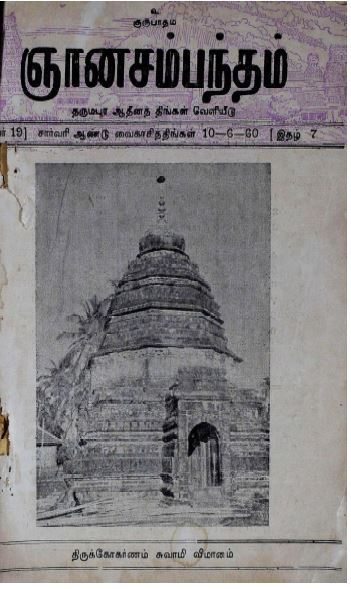 உ
குருபாதம்
ஞானசம்பந்தம்
தருமபுர ஆதீனத் திங்கள் வெளியீடு
19] சார்வரி ஆண்டு வைகாசித்திங்கள் 10—6—60 [ இதழ் 7
திருக்கோகர்ணம் சுவாமி விமானம்